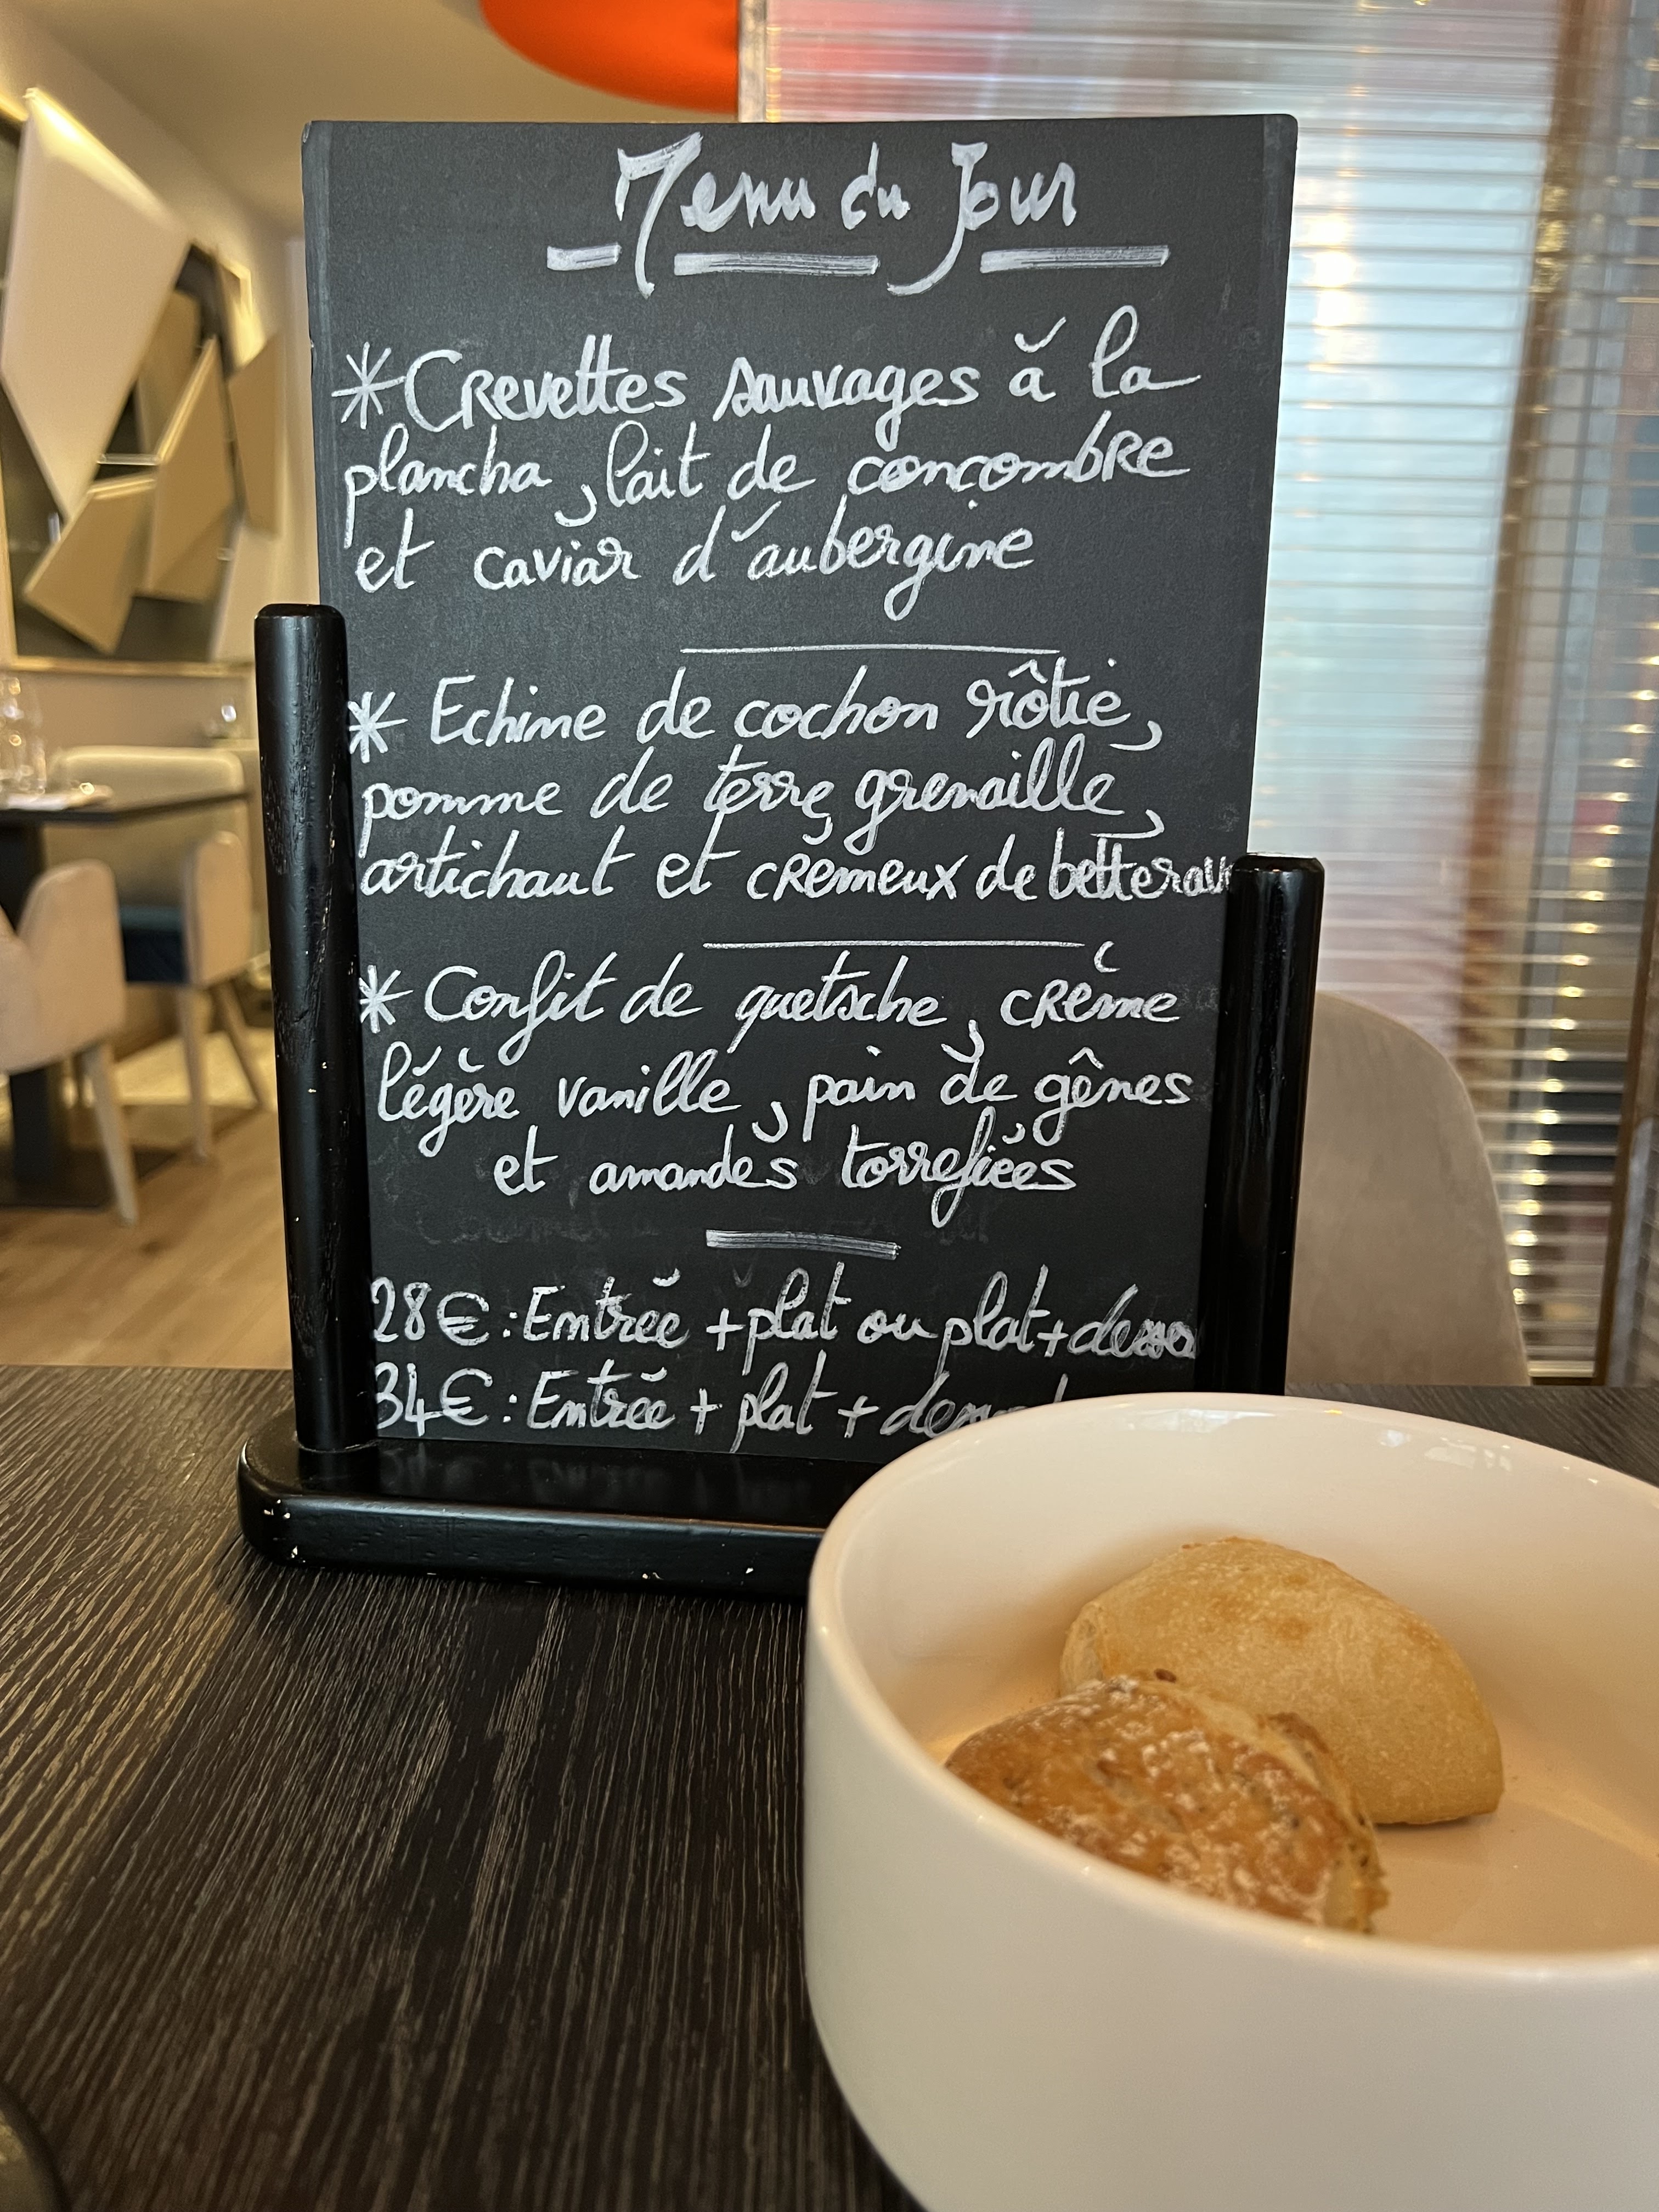 Menu du Jour
*Crevettes sauvages à la
plancha, lait de concombre
et caviar d'aubergine
* Echine de cochon rôtie,
pomme de terre grenaille,
artichaut et crémeux de betterave
* Confit de quetsche, crème
légère vanille, pain de gênes
et amandes torrefiées
28€ : Entrée + plat ou plat + dess
34€ : Entrée + plat + dess